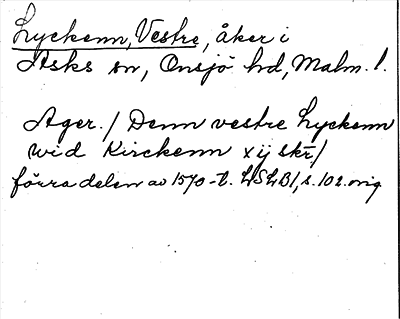 Lyckenn, Vestre, åker i
Asks sn, Onsjö hd, Malm. l.
Ager. / Denn vestre Lyckenn
wid Kirckenn xij skr /
förra delen av 1570-t. LSLB1, s. 102. orig